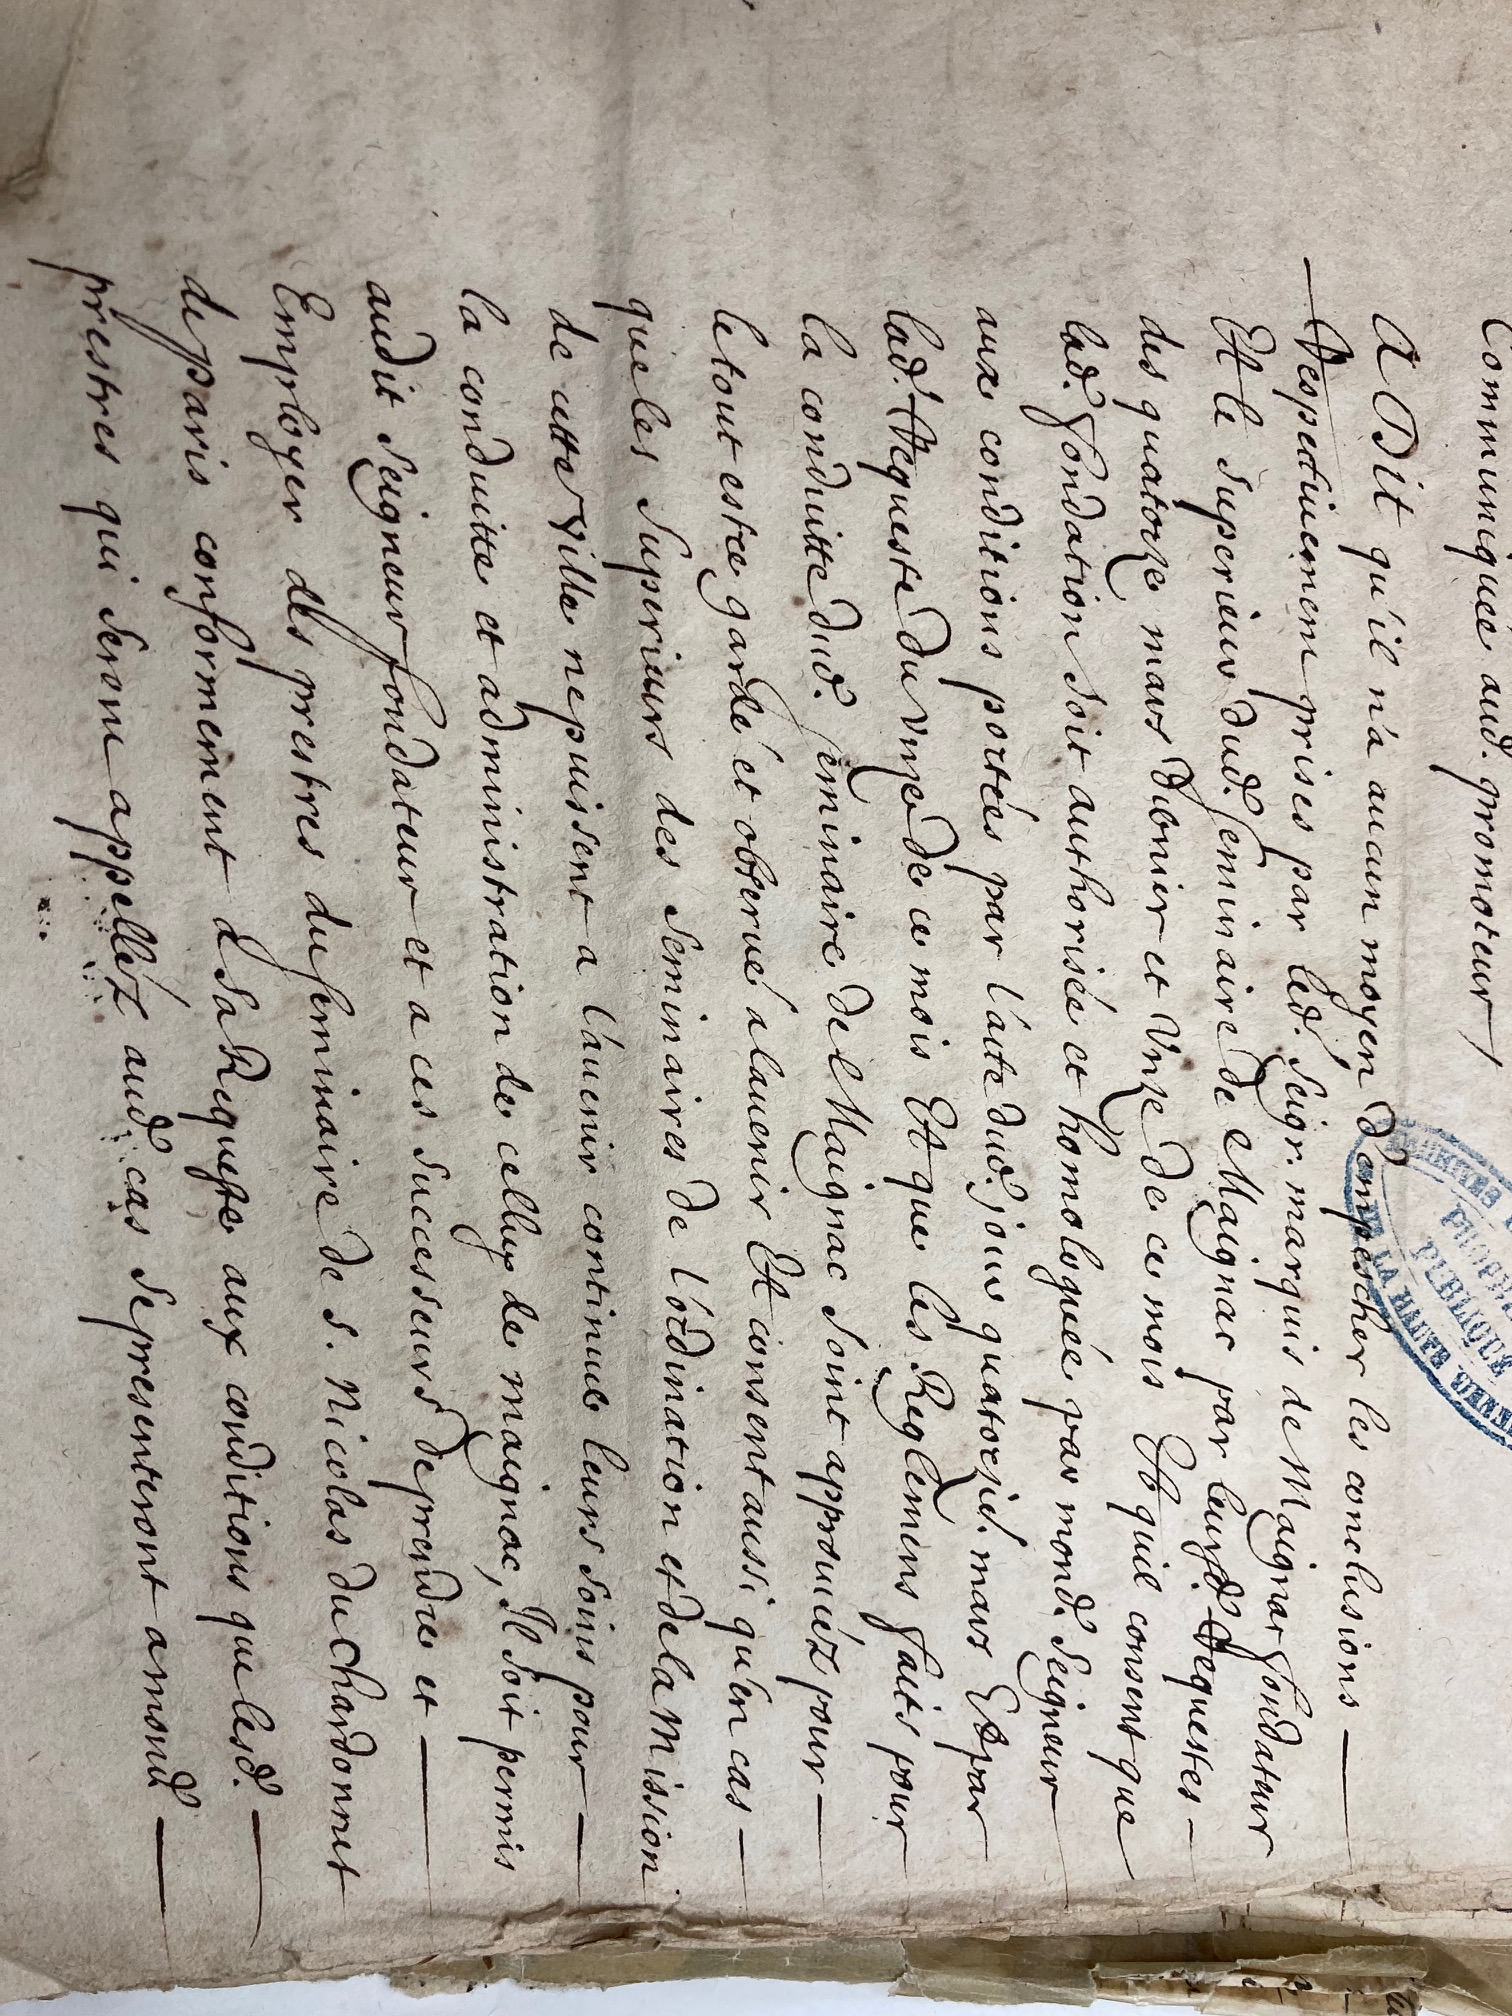 Communiquée aud. promoteur
A Dit qu'il n'a aucun moyen d'empescher les conclusions
Respectiuement prises par led. Seigr. marquis de Maignac fondateur
Et le superieur dud. seminaire de Maignac par leursd. Requestes
des quatorze mars dernier et Unze de ce mois Et quil consent que
lad. fondation soit authorisée et homologuée par mond. Seigneur
aux conditions portées par l'acte dud. jour quatorze mars Et par
lad. Requeste du unze de ce mois Et que les Reglemens faits pour
la conduitte dud. seminaire de Maignac soint approuuéz pour
le tout estre gardé et obserué a lauenir Et consent aussi qu'en cas
que les Superieurs des seminaires de l'ordination et de la Mission
de cette ville ne puissent a l'auenir continuer leurs soins pour
la conduitte et administration de celluy de maignac, Il soit permis
audit Seigneur fondateur et a ces successeurs de prendre et
Employer des prestres du seminaire de s. Nicolas du Chardonnet
de paris conformement a sa Requeste aux conditions que lesd.
prestres qui seront appelléz aud. cas se presenteront a mond.
ARCHIVES
PROPRIÉTÉ
PUBLIQUE
DE LA HAUTE VIENNE